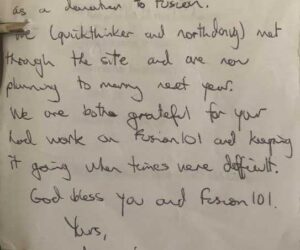 as a donation to Fusion.
We (quickthinker and northdoug) met
through the site and are now
planning to marry next year.
We are both grateful for your
hard work on Fusion101 and keeping
it going when times were difficult.
God bless you and Fusion101.
Yours,